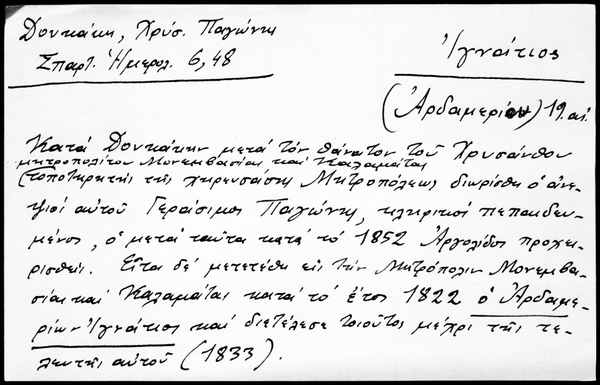 Δουκάκη, Χρύσ. Παγώνη
Σπαρτ. Ἡμερολ. 6, 48
Ἰγνάτιος
(Ἀρδαμερίου) 19. αἰ.
Κατά Δουκάκην μετά τόν θάνατον τοῦ Χρυσάνθου
μητροπολίτου Μονεμβασίας καί Καλαμάτας
(τοποτηρητής τῆς χηρευσάσης Μητροπόλεως διωρίσθη ὁ ἀνε-
ψιός αὐτοῦ Γεράσιμος Παγώνης, κληρικός πεπαιδευ-
μένος, ὁ μετά ταῦτα κατά τό 1852 Ἀργολίδος προχει-
ρισθείς. Εἶτα δέ μετετέθη εἰς τήν Μητρόπολιν Μονεμβα-
σίας καί Καλαμάτας κατά τό ἔτος 1822 ὁ Ἀρδαμε-
ρίων Ἰγνάτιος καί διετέλεσε τοιοῦτος μέχρι τῆς τε-
λευτῆς αὐτοῦ (1833).